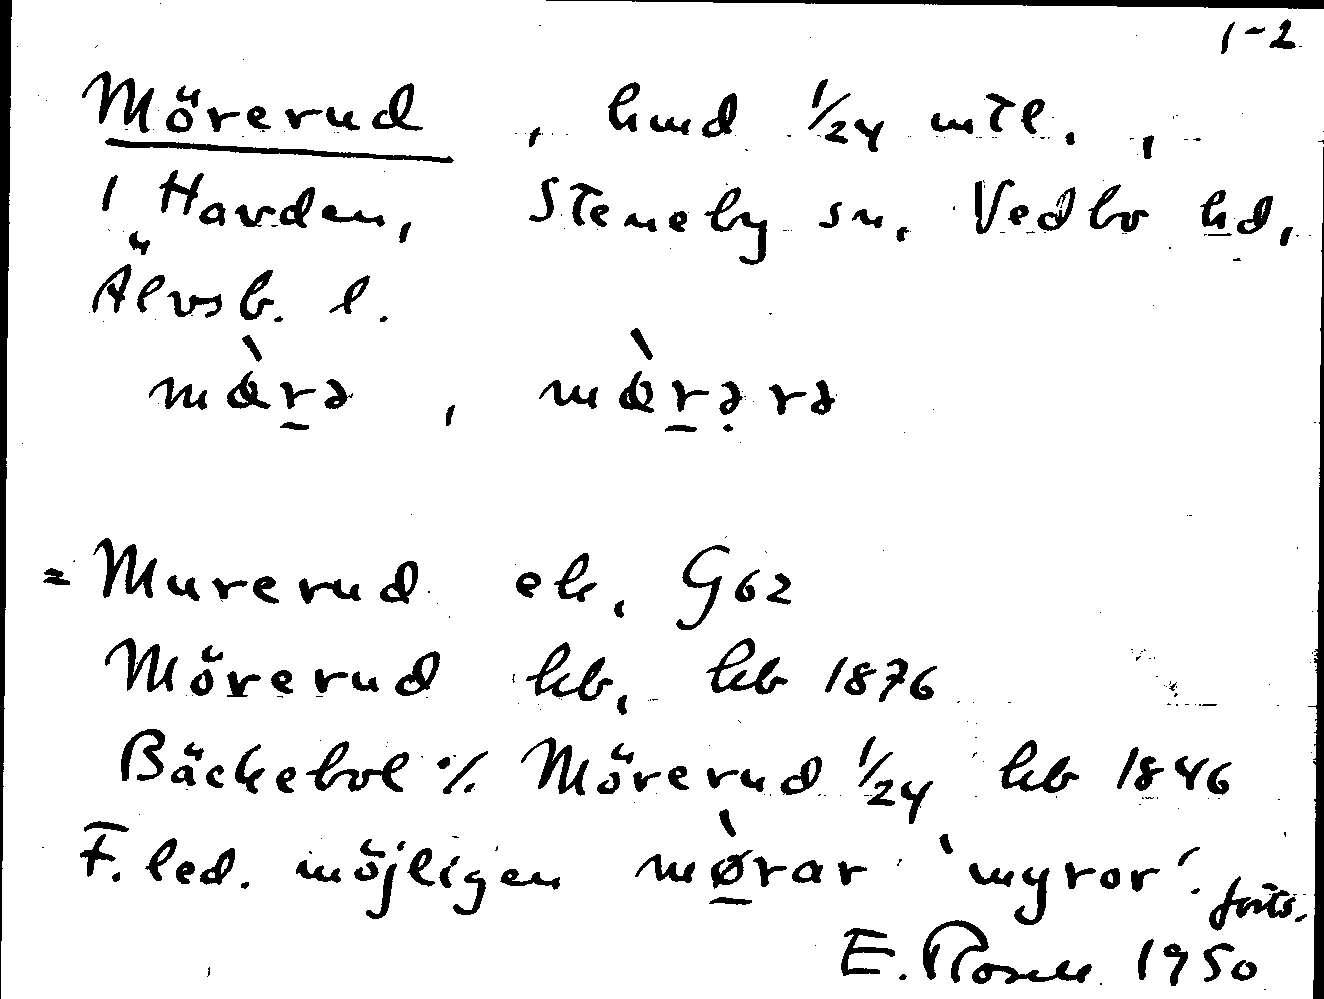 1-2
Mörerud, hmd 1/24 mtl.,
i Harden, Steneby sn, Vedbo hd,
Älvsb. l.
mꝏ̀rə, mꝏ̀rə̣rə
= Murerud ek, G62
Mörerud hb, hb 1876
Bäckebol % Mörerud 1/24 hb 1846
F. led. möjligen mø̀rar 'myror'. forts.
E. Rosell 1950